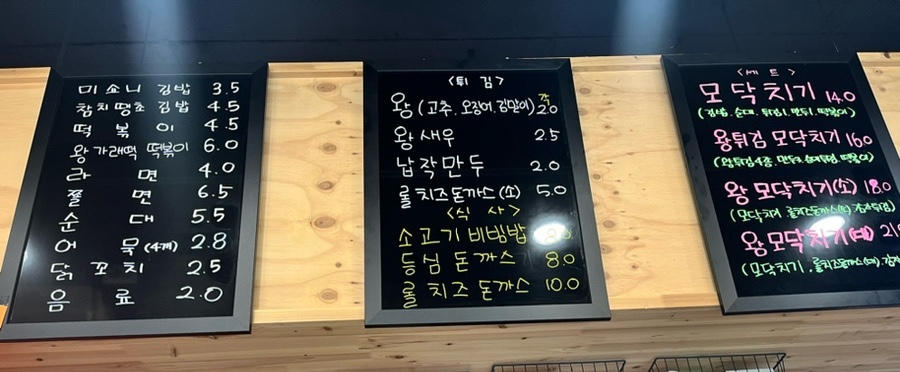 미소니 김밥 3.5
참치땡초 김밥 4.5
떡볶이 4.5
왕가래떡 떡볶이 6.0
라면 4.0
쫄면 6.5
순대 5.5
어묵(4개) 2.8
닭꼬치 2.5
음료 2.0
<튀김>
왕(고추.오징어.김말이) 각 2.0
왕새우 2.5
납작만두 2.0
롤치즈돈까스(소) 5.0
<식사>
소고기 비빔밥
등심 돈까스 8.0
롤치즈돈까스 10.0
<세트>
모닥치기 14.0
(김밥, 순대, 튀김, 만두, 떡볶이)
왕튀김 모닥치기 16.0
(왕튀김4종, 만두, 순대, 떡볶이)
왕 모닥치기(소) 18.0
(모닥치기, 롤치즈돈까스(소),
왕모닥치기(대)
(모닥치기, 롤치즈돈까스(대),